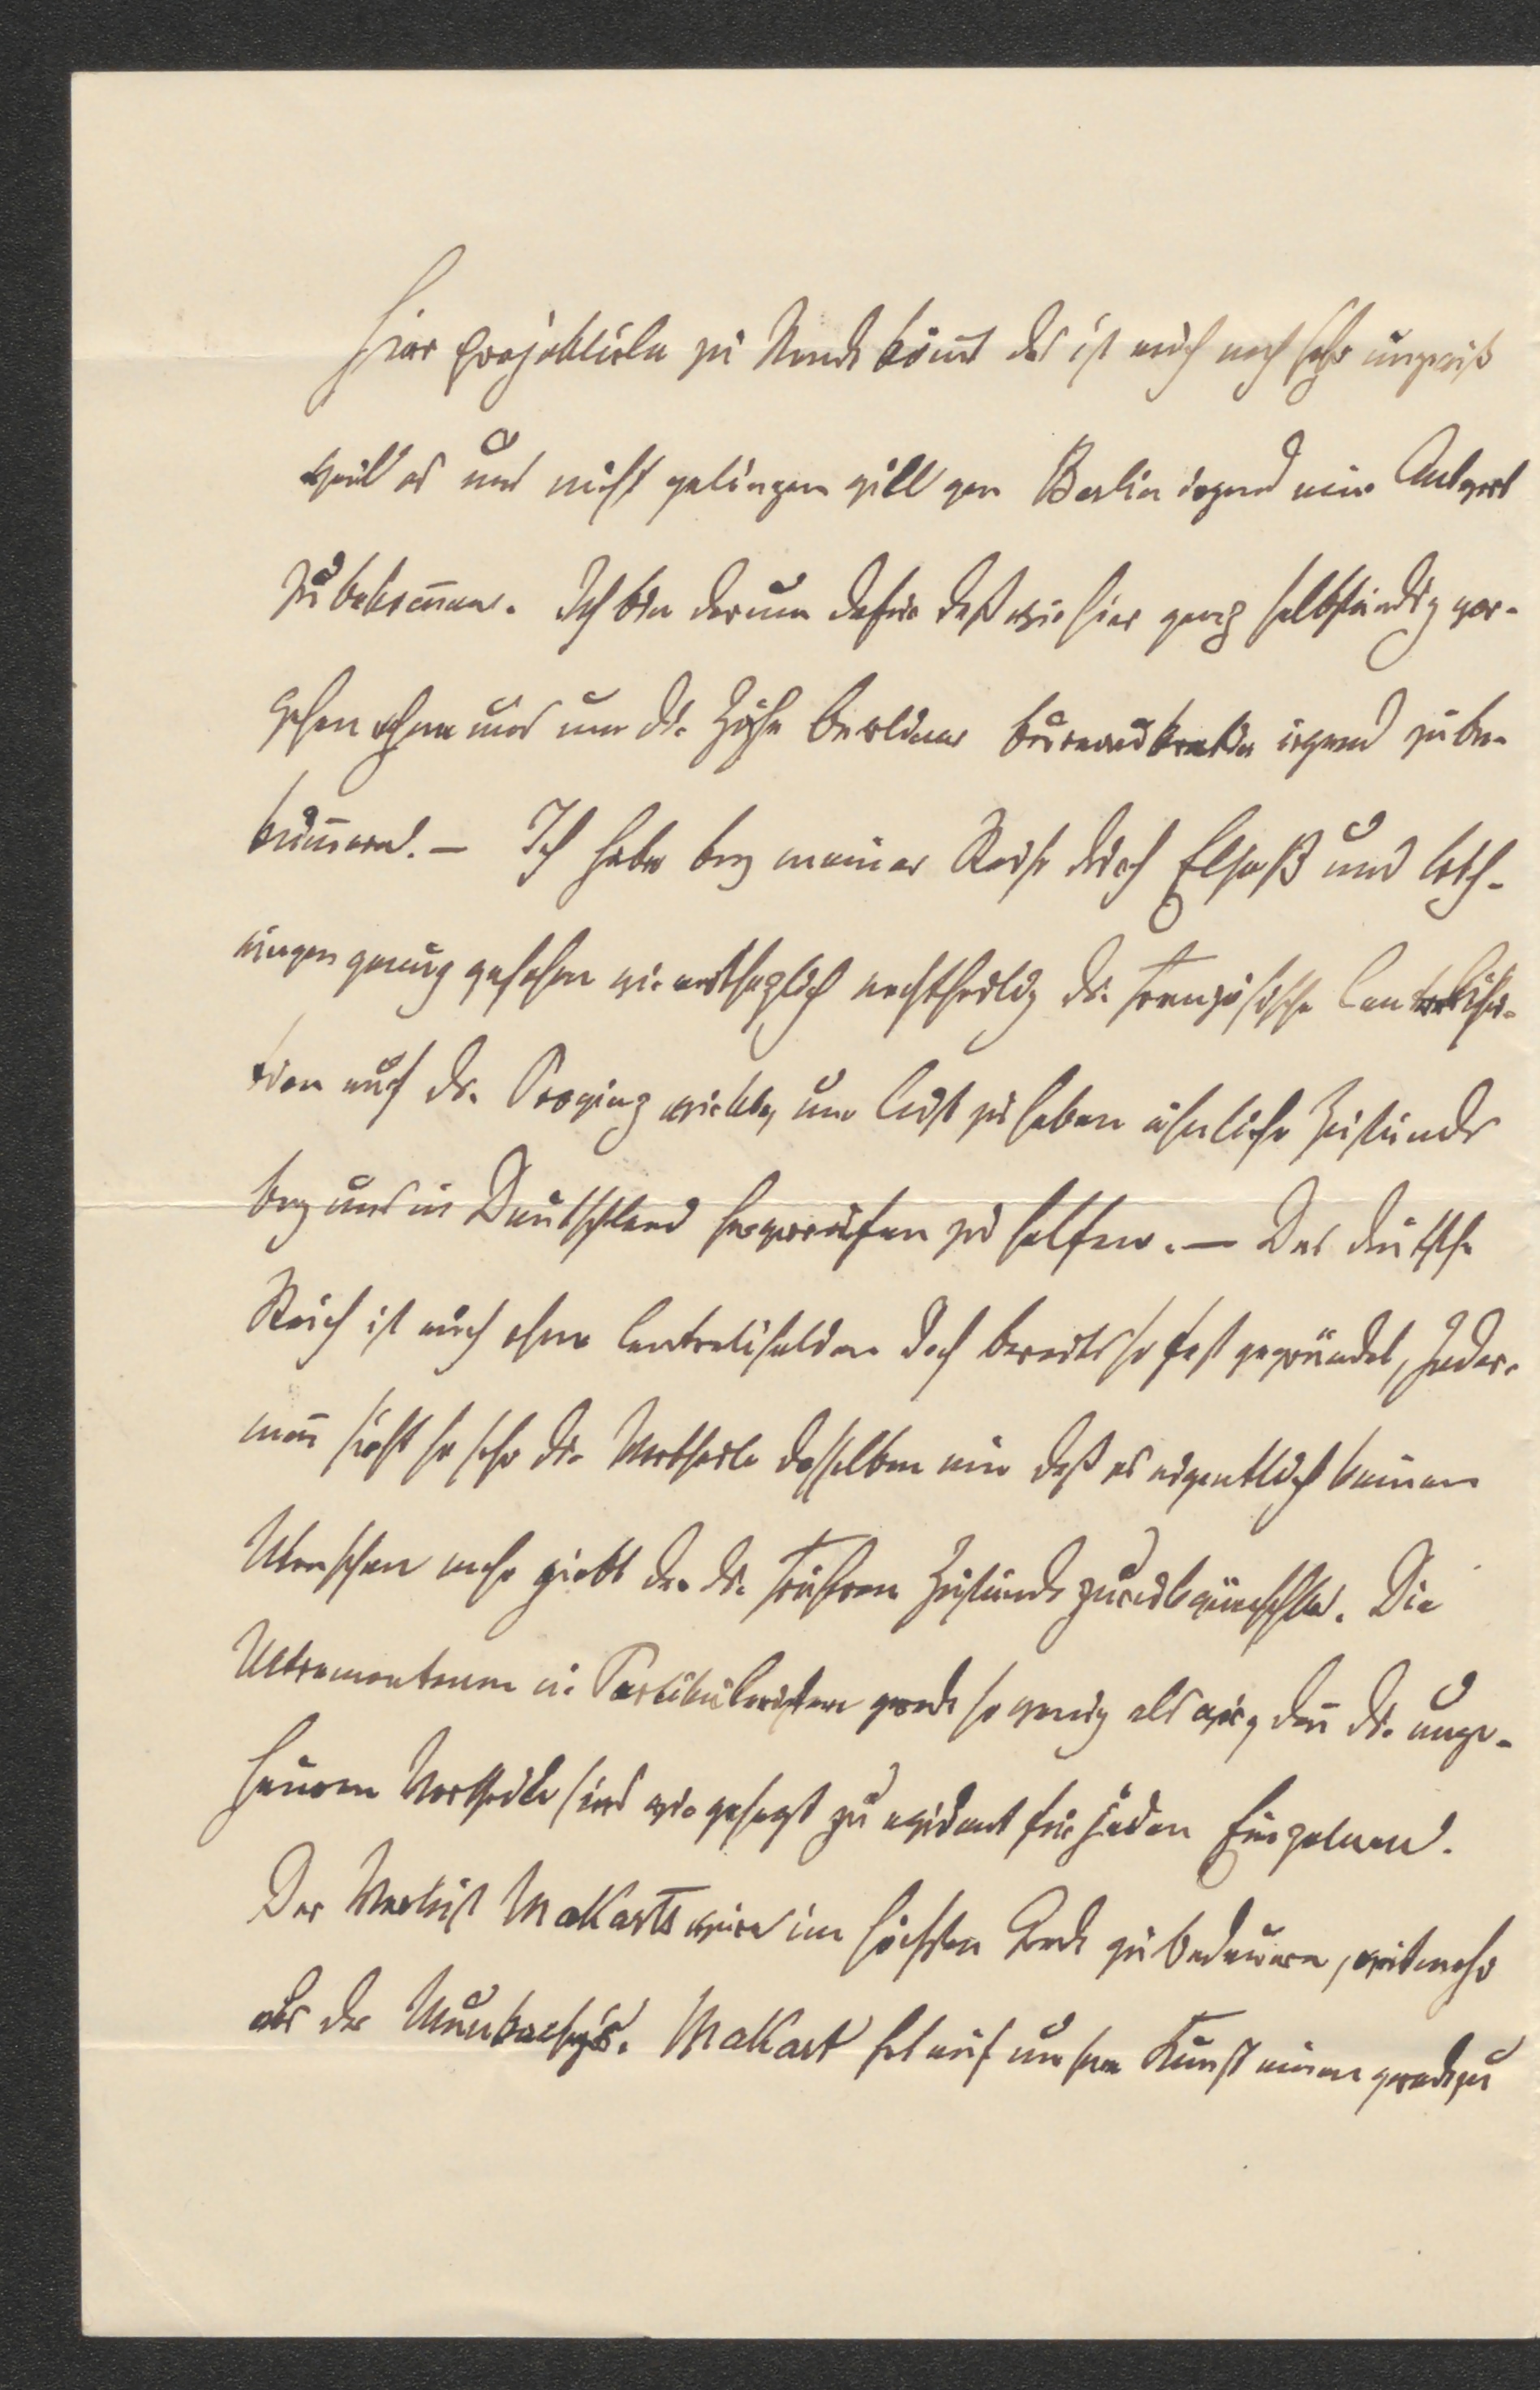 hier projektirte zu Stande kömt das ist auch noch sehr ungewiß
weil es uns nicht gelingen will von Berlin irgend eine Antwort
zu bekom̄en. Ich bin darum dafür daß wir hier ganz selbständig vor-
gehen ohne uns um die Berliner Bureaukratie irgend zu be-
küm̄ern. – Ich habe bey meiner Reise durch Elsaß und Loth-
ringen genug gesehen wie unsäglich nachtheilig die französische Centralisa-
tion auf die Provinz wirkte, um Lust zu haben ähnliche Zustände
bey uns in Deutschland hervorrufen zu helfen. – Das deutsche
Reich ist auch ohne Centralisation doch bereits so fest gegründet, Jeder-
man̄ sieht so sehr die Vortheile desselben ein daß es eigentlich keinen
Menschen mehr giebt der die früheren Zustände zurückwünschte. Die
Ultramontanen u. Partikularisten grade so wenig als wir, den̄ die unge-
heuren Vortheile sind wie gesagt zu evident für jeden Einzelnen.
Der Verlust Makarts wäre im höchsten Grade zu bedauern, weit mehr
als der Munkacsys. Makart hat auf unsere Kunst einen geradezu